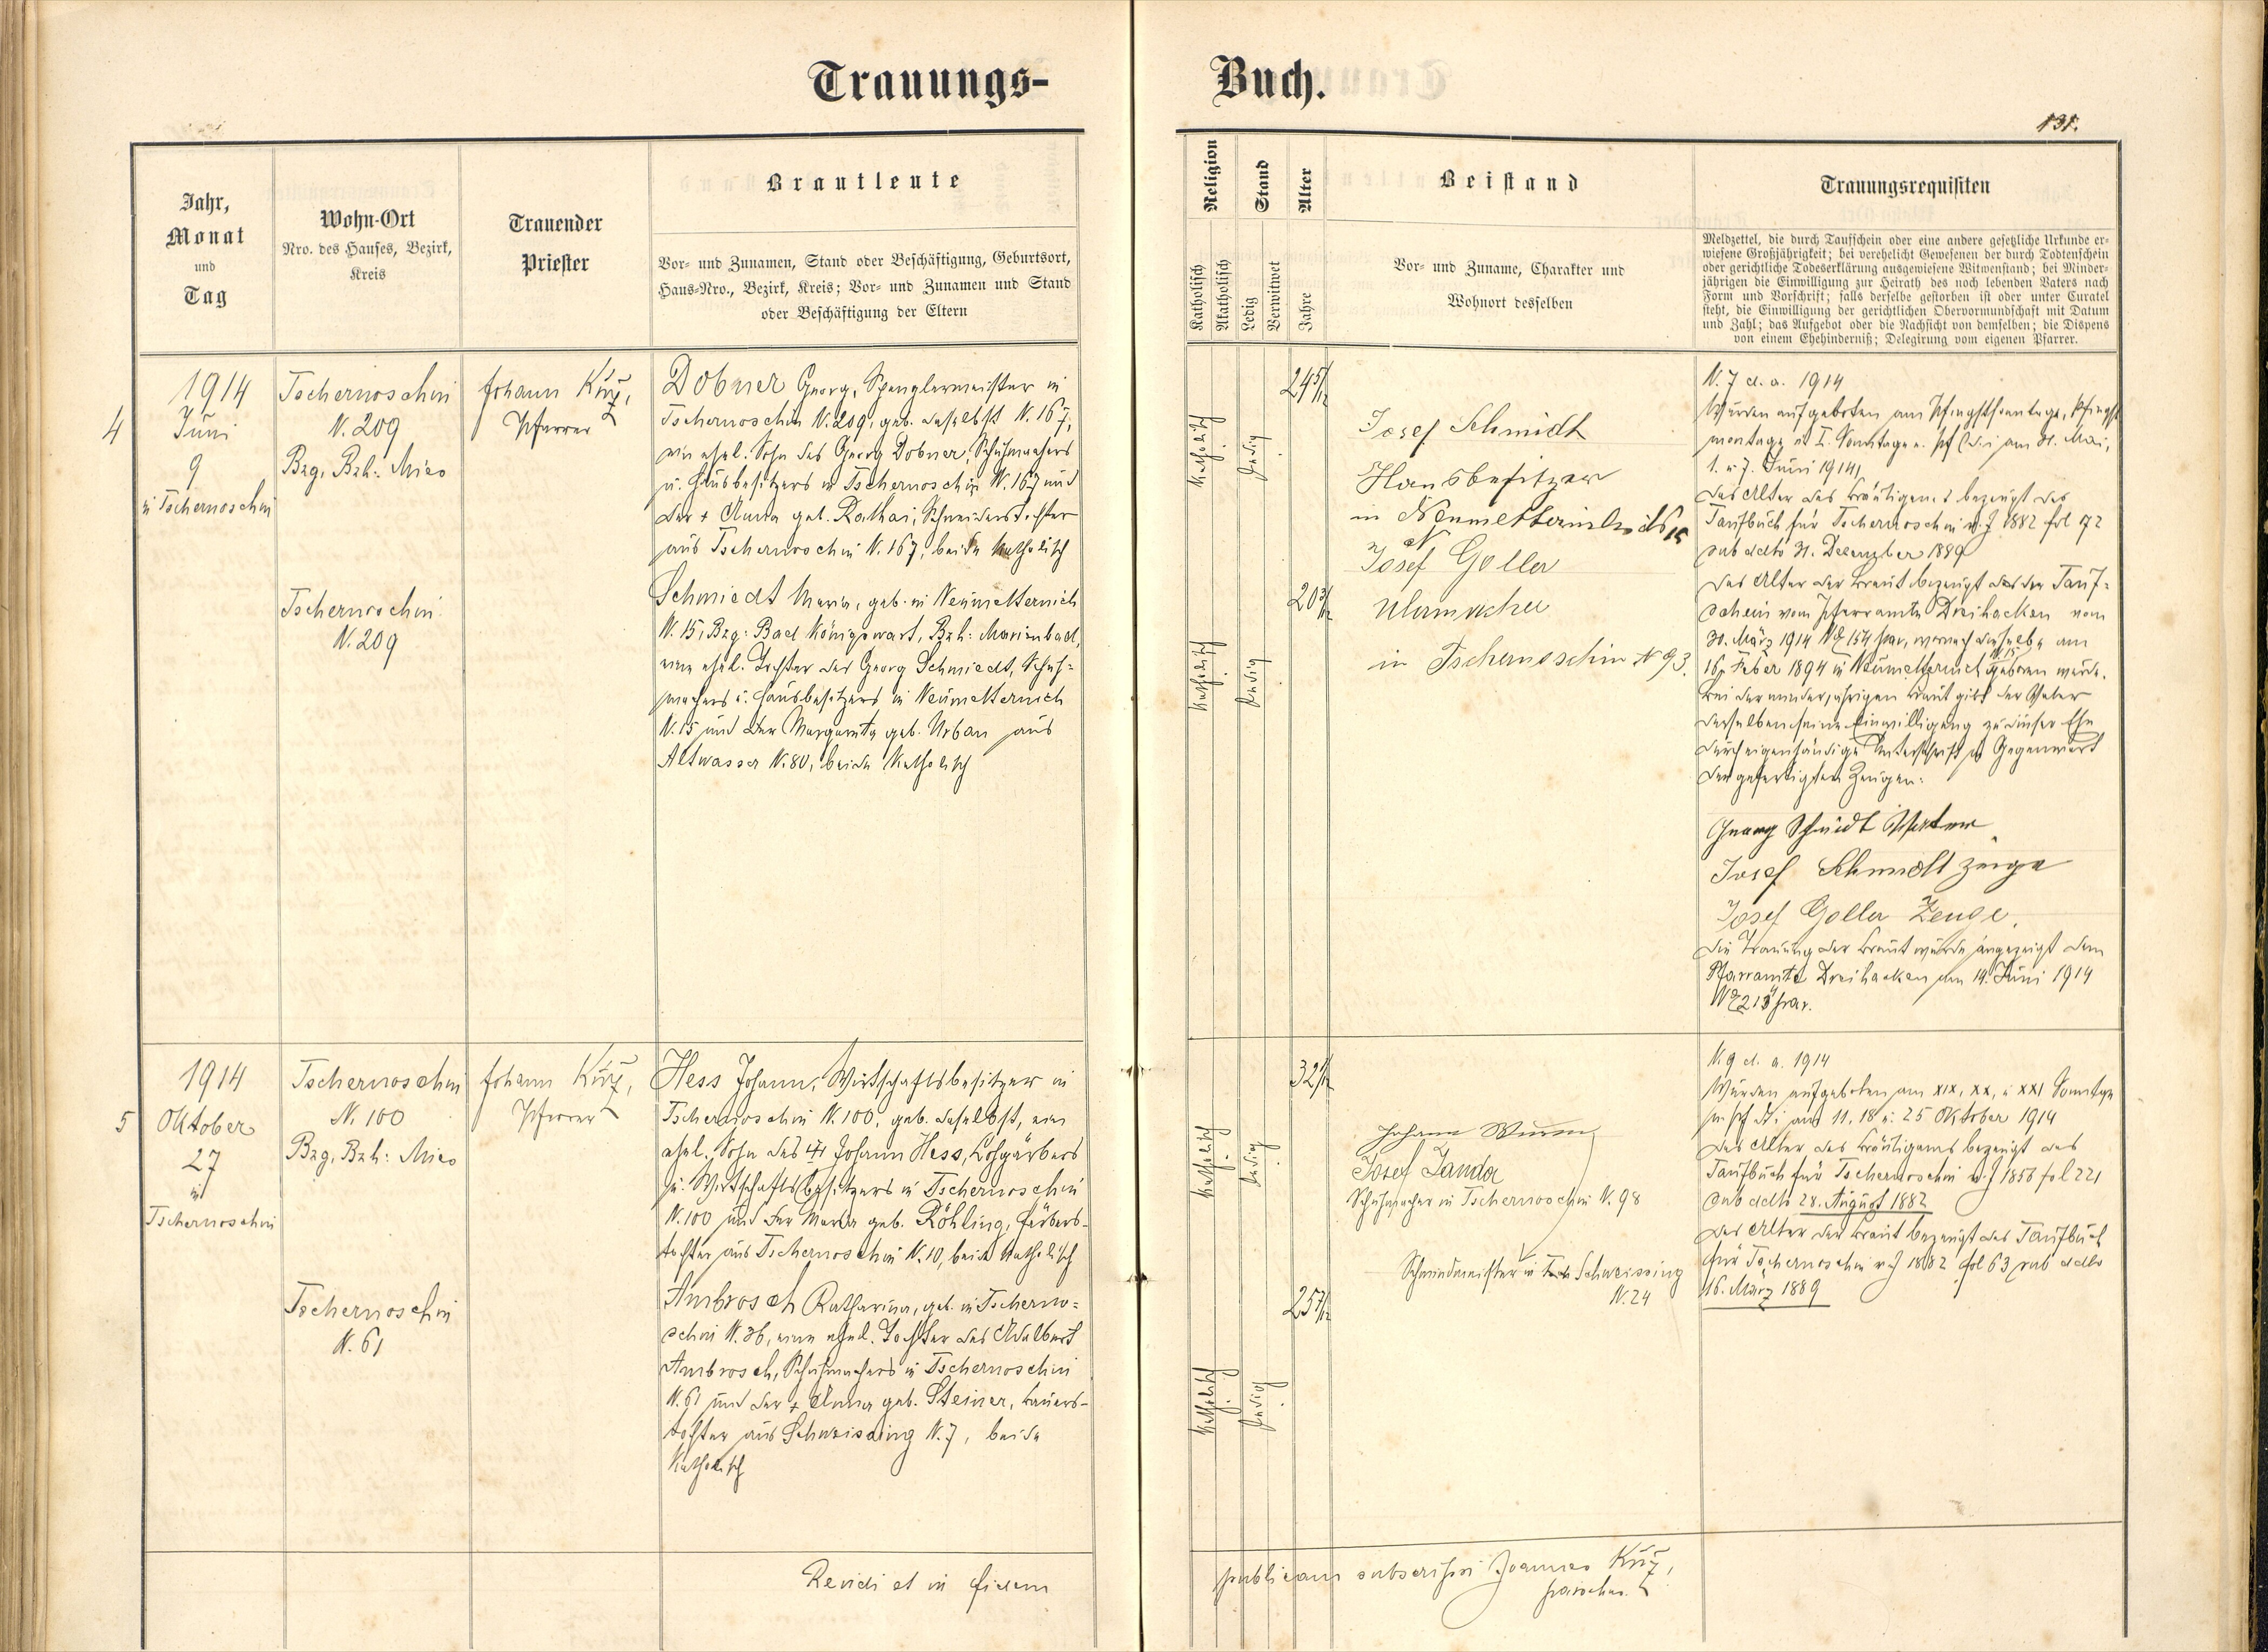 Trauungs-
Buch.
131.
Jahr,
Monat
und
Tag
Wohn-Ort
Nro. des Hauses, Bezirk,
Kreis
Trauender
Priester
Brautleute
Vor- und Zunamen, Stand oder Beschäftigung, Geburtsort,
Haus-Nro., Bezirk, Kreis; Vor- und Zunamen und Stand
oder Beschäftigung der Eltern
Religion
Katholisch
Akatholisch
Stand
Ledig
Verwitwet
Alter
Jahre
Beistand
Vor- und Zuname, Charakter und
Wohnort desselben
Trauungsrequisiten
Meldzettel, die durch Taufschein oder eine andere gesetzliche Urkunde er-
wiesene Großjährigkeit; bei verehelicht Gewesenen der durch Todtenschein
oder gerichtliche Todeserklärung ausgewiesene Witwenstand; bei Minder-
jährigen die Einwilligung zur Heirath des noch lebenden Vaters nach
Form und Vorschrift; falls derselbe gestorben ist oder unter Curatel
steht, die Einwilligung der gerichtlichen Obervormundschaft mit Datum
und Zahl; das Aufgebot oder die Nachsicht von demselben; die Dispens
von einem Ehehinderniß; Delegirung vom eigenen Pfarrer.
4
1914
Juni
9
in Tschernoschin
Tschernoschin
N. 209
Bzg, Bzh: Mies
Tschernoschin
N. 209
Johann Kurz,
Pfarrer
Dobner Georg, Spenglermeister in
Tschernoschin N. 209, geb. daselbst N. 167,
ein ehel. Sohn des Georg Dobner, Schuhmachers
u. Hausbesitzers in Tschernoschin N. 167 und
der + Anna geb. Rathai, Schneiderstochter
aus Tschernoschin N. 167, beide katholisch
Schmiedt Maria, geb. in Neumetternich
N. 15, Bzg: Bad Königswart, Bzh: Marienbad,
eine ehel. Tochter des Georg Schmiedt, Schuh-
machers u. Hausbesitzers in Neumetternich
N. 15 und der Margareta geb. Urban aus
Altwasser N. 80, beide katholisch
katholisch
ledig
24 5/12
katholisch
ledig
20 3/12
Josef Schmidt
Hausbesitzer
in Neumetternich N 15
Josef Goller
Uhrmacher
in Tschernoschin N 93.
N. 7 d. a. 1914
Wurden aufgeboten am Pfingstsonntage, Pfingst
montage u. I. Sonntage n. Pf d. i. am 31. Mai,
1. u 7. Juni 1914,
Das Alter des Bräutigams bezeugt das
Taufbuch für Tschernoschin v. J 1882 fol 172
sub ddto 31. Dezember 1889
Das Alter der Braut bezeugt der Tauf-
schein vom Pfarramte Dreihacken vom
30. März 1914 154 wornach dieselbe am
16. Feber 1894 in Neumetternich N. 15 geboren wurde.
Bei der minderjährigen Braut gibt der Vater
derselben seine Einwilligung zu dieser Ehe
durch eigenhändige Unterschrift in Gegenwart
der gefertigten Zeugen:
Georg Schmidt Vater
Josef Schmidt Zeuge
Josef Goller Zeuge.
Die Trauung der Braut wurde angezeigt dem
Pfarramte Dreihacken am 14. Juni 1914
5
1914
Oktober
27
in
Tschernoschin
Tschernoschin
N. 100
Bzg, Bzh: Mies
Tschernoschin
N. 61
Johann Kurz,
Pfarrer
Hess Johann, Wirtschaftsbesitzer in
Tschernoschin N. 100, geb. daselbst, ein
ehel. Sohn des + Johann Hess, Lohgärbers
u. Wirtschaftsbesitzers in Tschernoschin
N. 100 und der Maria geb. Röhling, Färbers-
tochter aus Tschernoschin N. 10, beide katholisch
Ambrosch Katharina, geb. in Tscherno-
schin N. 36, eine ehel. Tochter des Adalbert
Ambrosch, Schuhmachers in Tschernoschin
N. 61 und der + Anna geb. Steiner, Bauers-
tochter aus Schweissing N. 7, beide
katholisch
katholisch
ledig
32
katholisch
ledig
25 7/12
Johann
Josef Janda
Schuhmacher in Tschernoschin N. 98
Schmiedmeister in Schweissing
N. 24
N. 9 d. a. 1914
Wurden aufgeboten am XIX, XX, u XXI Sonntage
n. Pf d. i. am 11, 18 u. 25 Oktober 1914
Das Alter des Bräutigams bezeugt das
Taufbuch für Tschernoschin v. J 1856 fol 221
sub ddto 28. August 1882
Das Alter der Braut bezeugt das Taufbuch
für Tschernoschin v. J 1882 fol 63 sub ddto
16. März 1889
Revidi et in fidem
publicam subscripsi Joannes Kurz,
parochus.